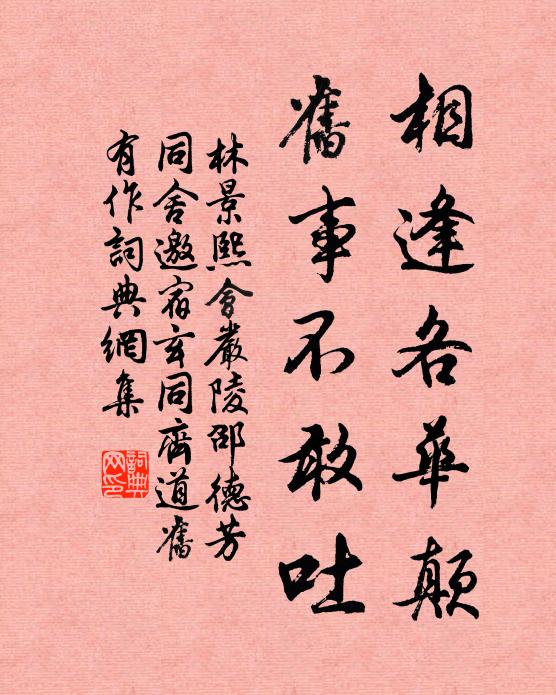 相逢各華顛
舊事不敢吐
林景熙會嚴陵邵德芳
同舍邀宿玄同齊道舊
有作詞典網集
詞典網印